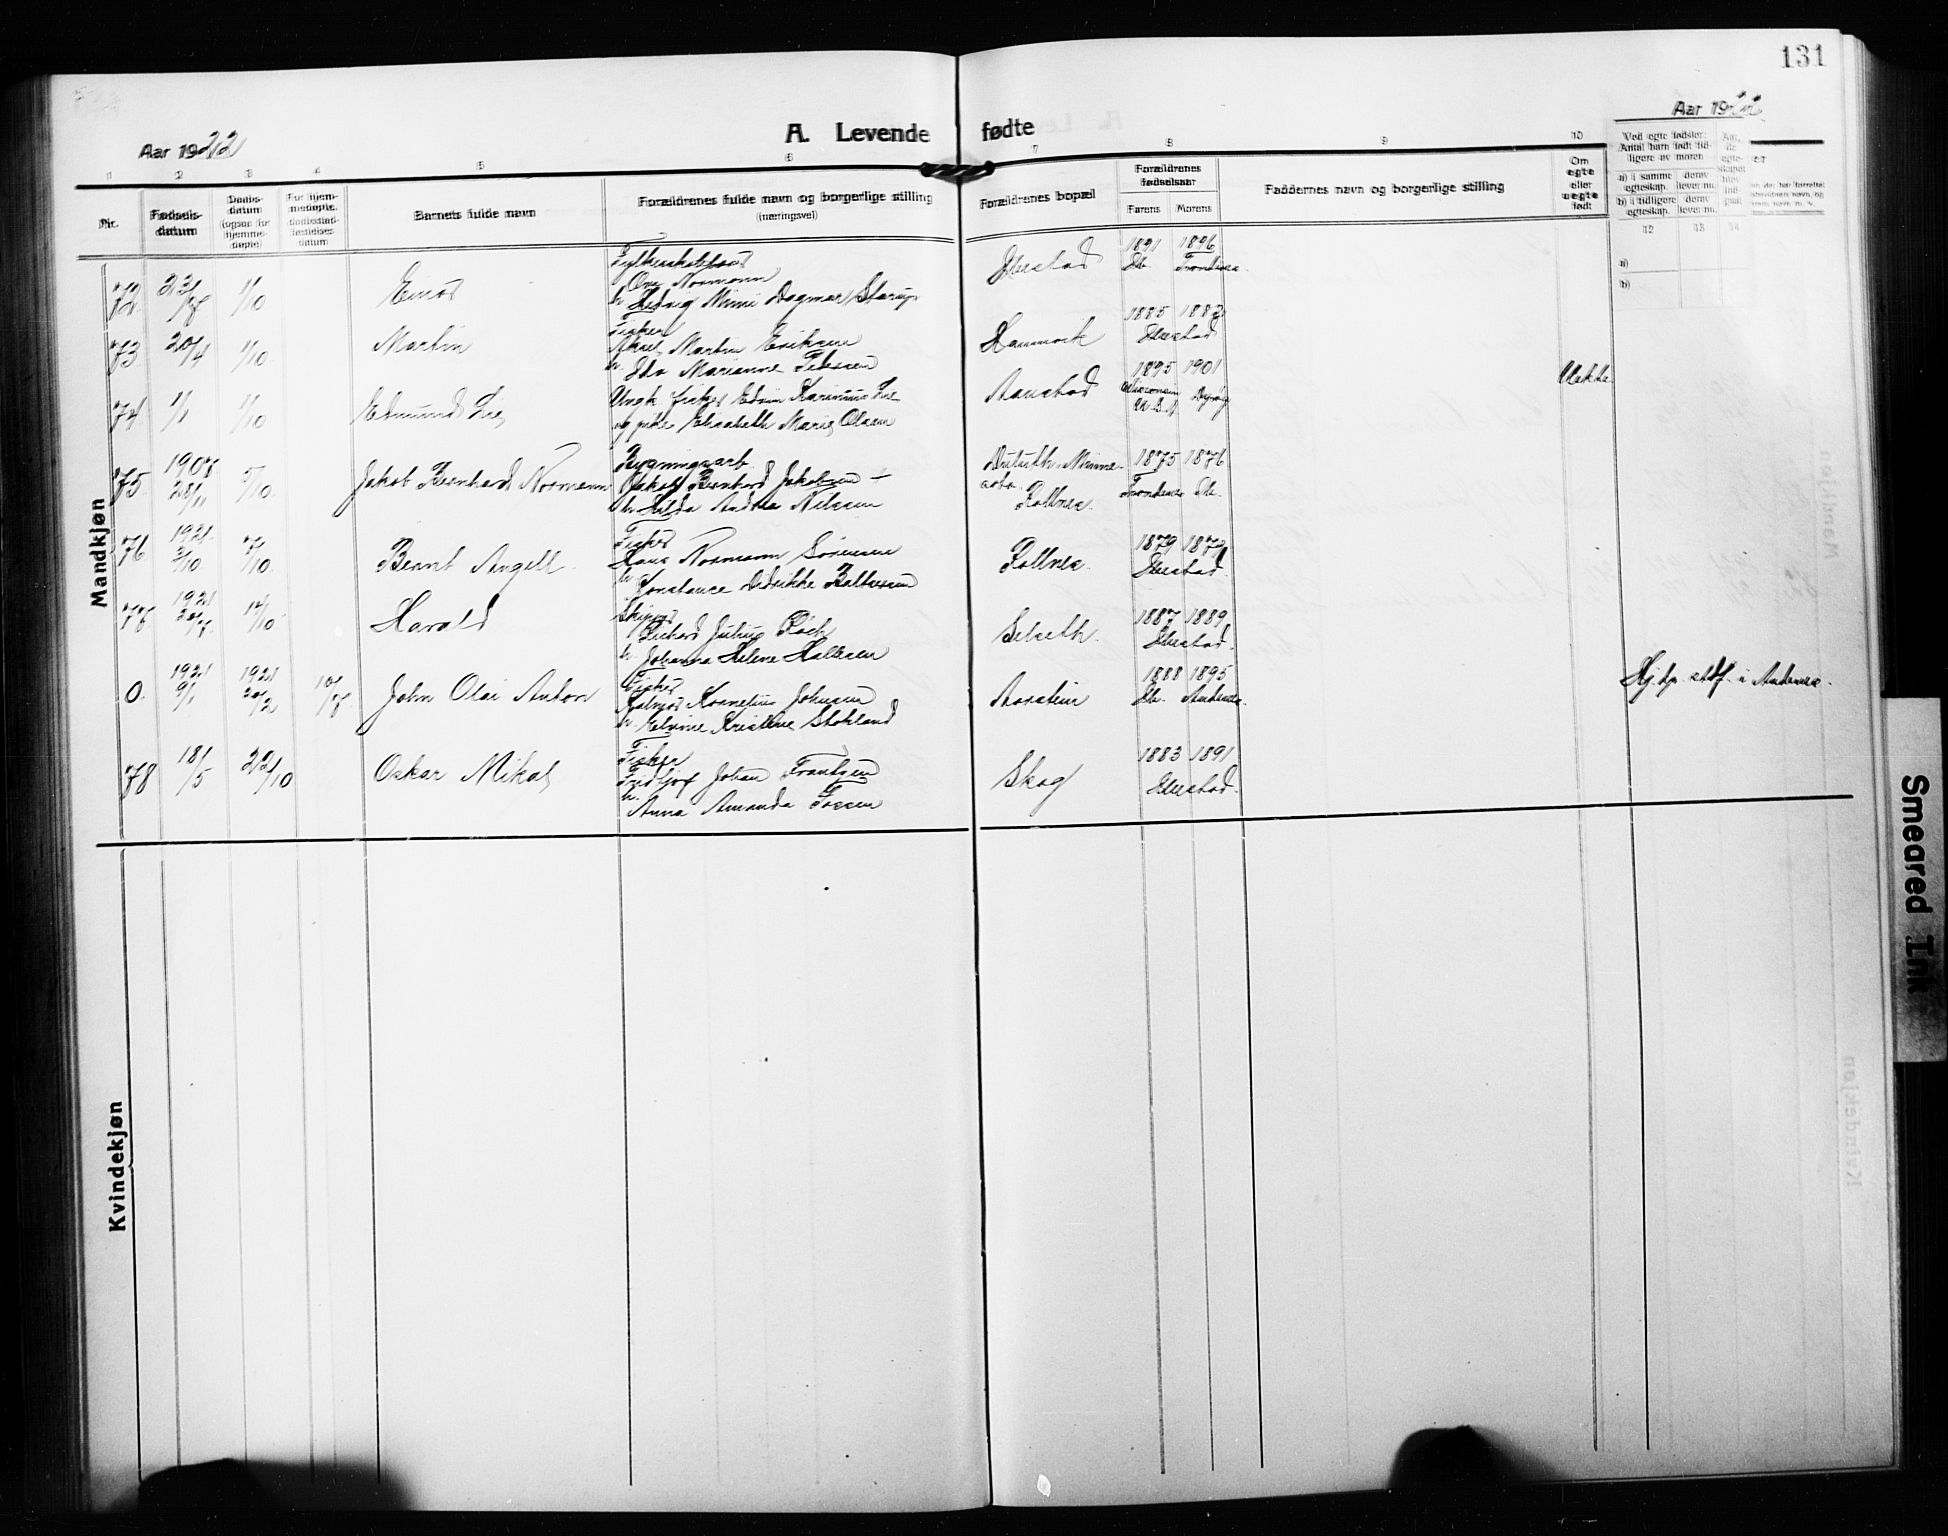 131
Aar 1922
A. Levende fødte
Aar 1922
1 2 3 4 5 6 7 8 9 10
Nr.
Fødsels-
datum
Daabs-
datum
(ogsaa for
hjemme-
døpte)
For hjem-
medøpte:
daabsstad-
fæstelses
datum
Barnets fulde navn
Forældrenes fulde navn og borgerlige stilling
(næringsvei)
Forældrenes bopæl
Forældrenes
fødselsaar
Farens Morens
Faddernes navn og borgerlige stilling
Om
egte
eller
uegte
født
Ved egte fødsler:
Antal barn født tid-
ligere av moren
a) i samme
egteskap.
b) i tidligere
egteskap.
derav
lever nu.
derav
lever nu.
12 13 14
a)
b)
Mandkjøn
72. 23/8 1/10 Einar
Ove Normann
h. Hedvig Mimi Dagmar
Ibestad 1891 1896
Ib. Trondenes
73. 20/4 1/10 Martin
Fisker
Aksel Martin Eriksen
h. Ida Marianne Petersen
Hamnvik 1885 1883
Ibestad
74. 1/1 1/10 Edmund Lie
Ungk. fisker Edvin Karinius Lie
og pike Elisabeth Marie Olsen
Aanstad 1895 1901
Uekte
75. 1907 28/11 5/10 Jakob Bernhard Normann
Bygningsarb.
Oskar Bernhard Jakobsen +
h. Hilda Andrea Nilssen
Duluth, Minne-
sota
Rollnes. 1875 1876
Trondenes Ib.
76. 1921 3/10 7/10 Bernt Angell
Fisker
Hans Normann Sørensen
h. Konstance Didrikke Baltsersen
Rollnes. 1879
Ibestad.
77. 1921 Harald
Skipper
Richard Julius Roch
h. Johanna Helene Hallesen
Selseth. 1887 1889
Ibestad.
0. 1921 9/1 1921 20/2 John Olai Anton
Fisker
Kornelius Johnsen
h. Elvine Kristine Stokland
Aarstein 1888 1895
Ib. Andenes.
Hj.dp. stdf. i Andenes.
78 18/5 22/10 Oskar Mikal
Fisker
Fridtjof Johan Frantzen
h. Anna Amanda
Skog 1883 1891
Ibestad.
Kvindekjøn
Smeared Ink